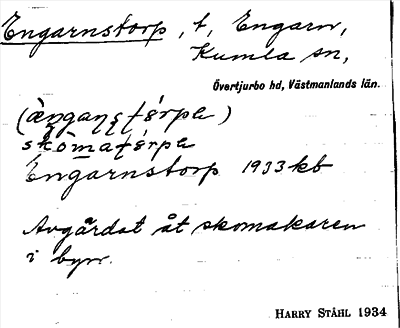 Engarnstorp, t, Engarn,
Kumla sn,
Övertjurbo hd, Västmanlands län.
(
skòmatórpɛ
Engarnstorp 1933 kb
Avgärdat åt skomakaren
i byn.
HARRY STÅHL 1934